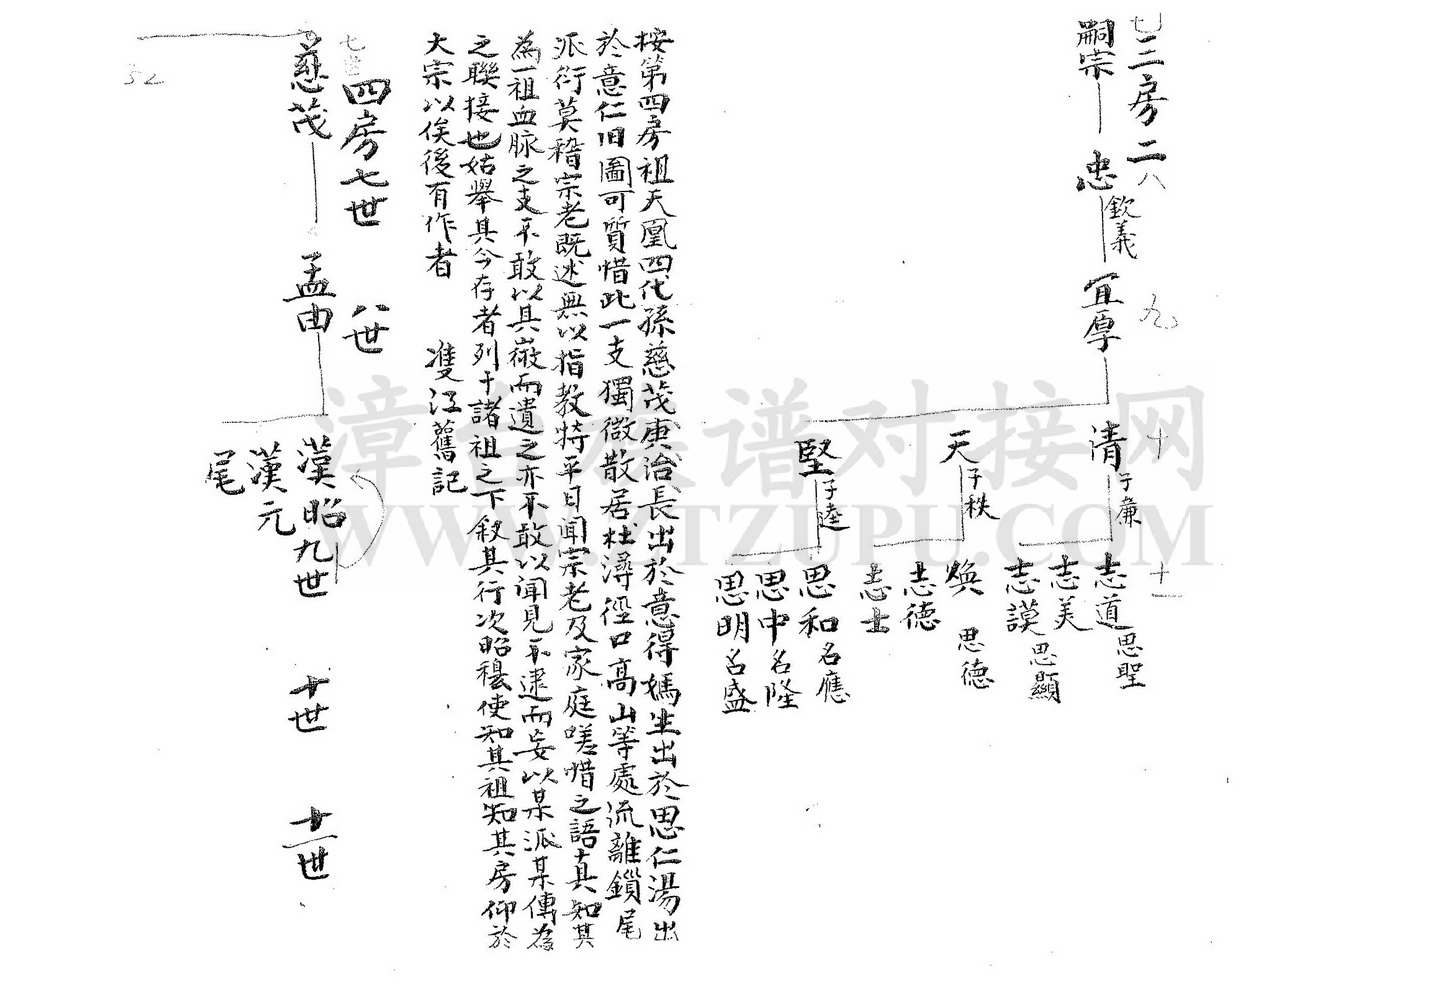 三房二
七 八 九 十 十一
嗣宗 忠 欽義 宜厚
清 子廉 志道 思聖
志美
志謨 思顯
天 子秩 煥 思德
志德
志士
堅 子達 思和 名應
思中 名隆
思明 名盛
按第四房祖天凰四代孫慈茂庚治長出於意得媽生出於思仁湯出
於意仁旧圖可質惜此一支獨微散居杜潯徑口高山等處流離鎖尾
派衍莫稽宗老既逝無以指教特平日聞宗老及家庭嗟惜之語真知其
為一祖血脉之支不敢以其微而遺之亦不敢以闻見不逮而妄以某派某傳為
之聯接也姑舉其今存者列于諸祖之下敘其行次昭穆使知其祖知其房仰於
大宗以俟後有作者 雙江舊記
四房七世 八世
七世
慈茂 孟由
漢昭九世 十世 十一世
漢元
尾
52
漳台族谱对接网
WWW.ZTZUPU.COM